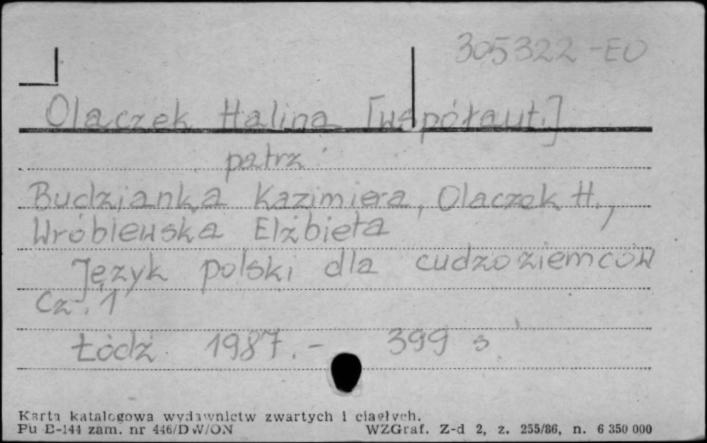 305322-EO
Olaczek Halina [współaut.]
patrz:
Budzianka Kazimiera, Olaczek H.,
Wróblewska Elżbieta
Język polski dla cudzoziemców
Cz. 1
Łódź 1987.- 399 s.
Karta katalogowa wydawnictw zwartych i ciągłych.
Pu B-144 zam. nr 446/DW/ON WZGraf. Z-d 2, z. 255/86, n. 6 350 000